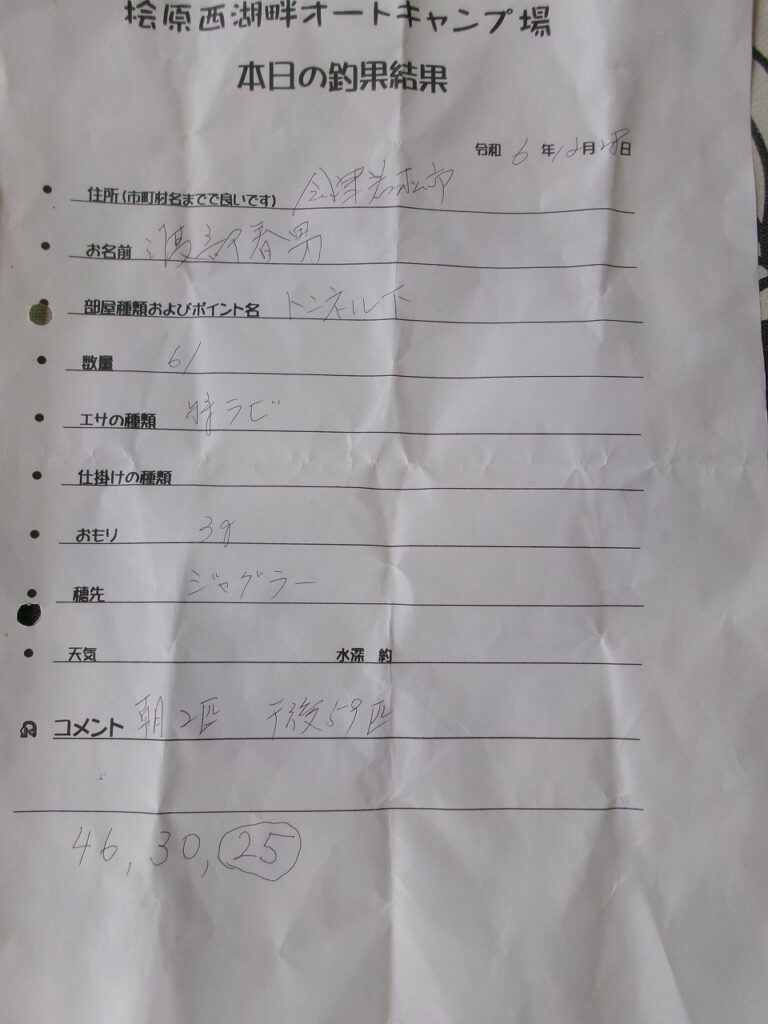 桧原西湖畔オートキャンプ場
本日の釣果結果
令和 6 年 12月 28日
住所(市町村名までで良いです) 会津若松市
お名前 渡部春男
部屋種類およびポイント名 トンネル下
数量 61
エサの種類 ラビ
仕掛けの種類
おもり 3g
穂先 ジャグラー
天気 水深 約
コメント 朝2匹 午後59匹
46, 30, 25